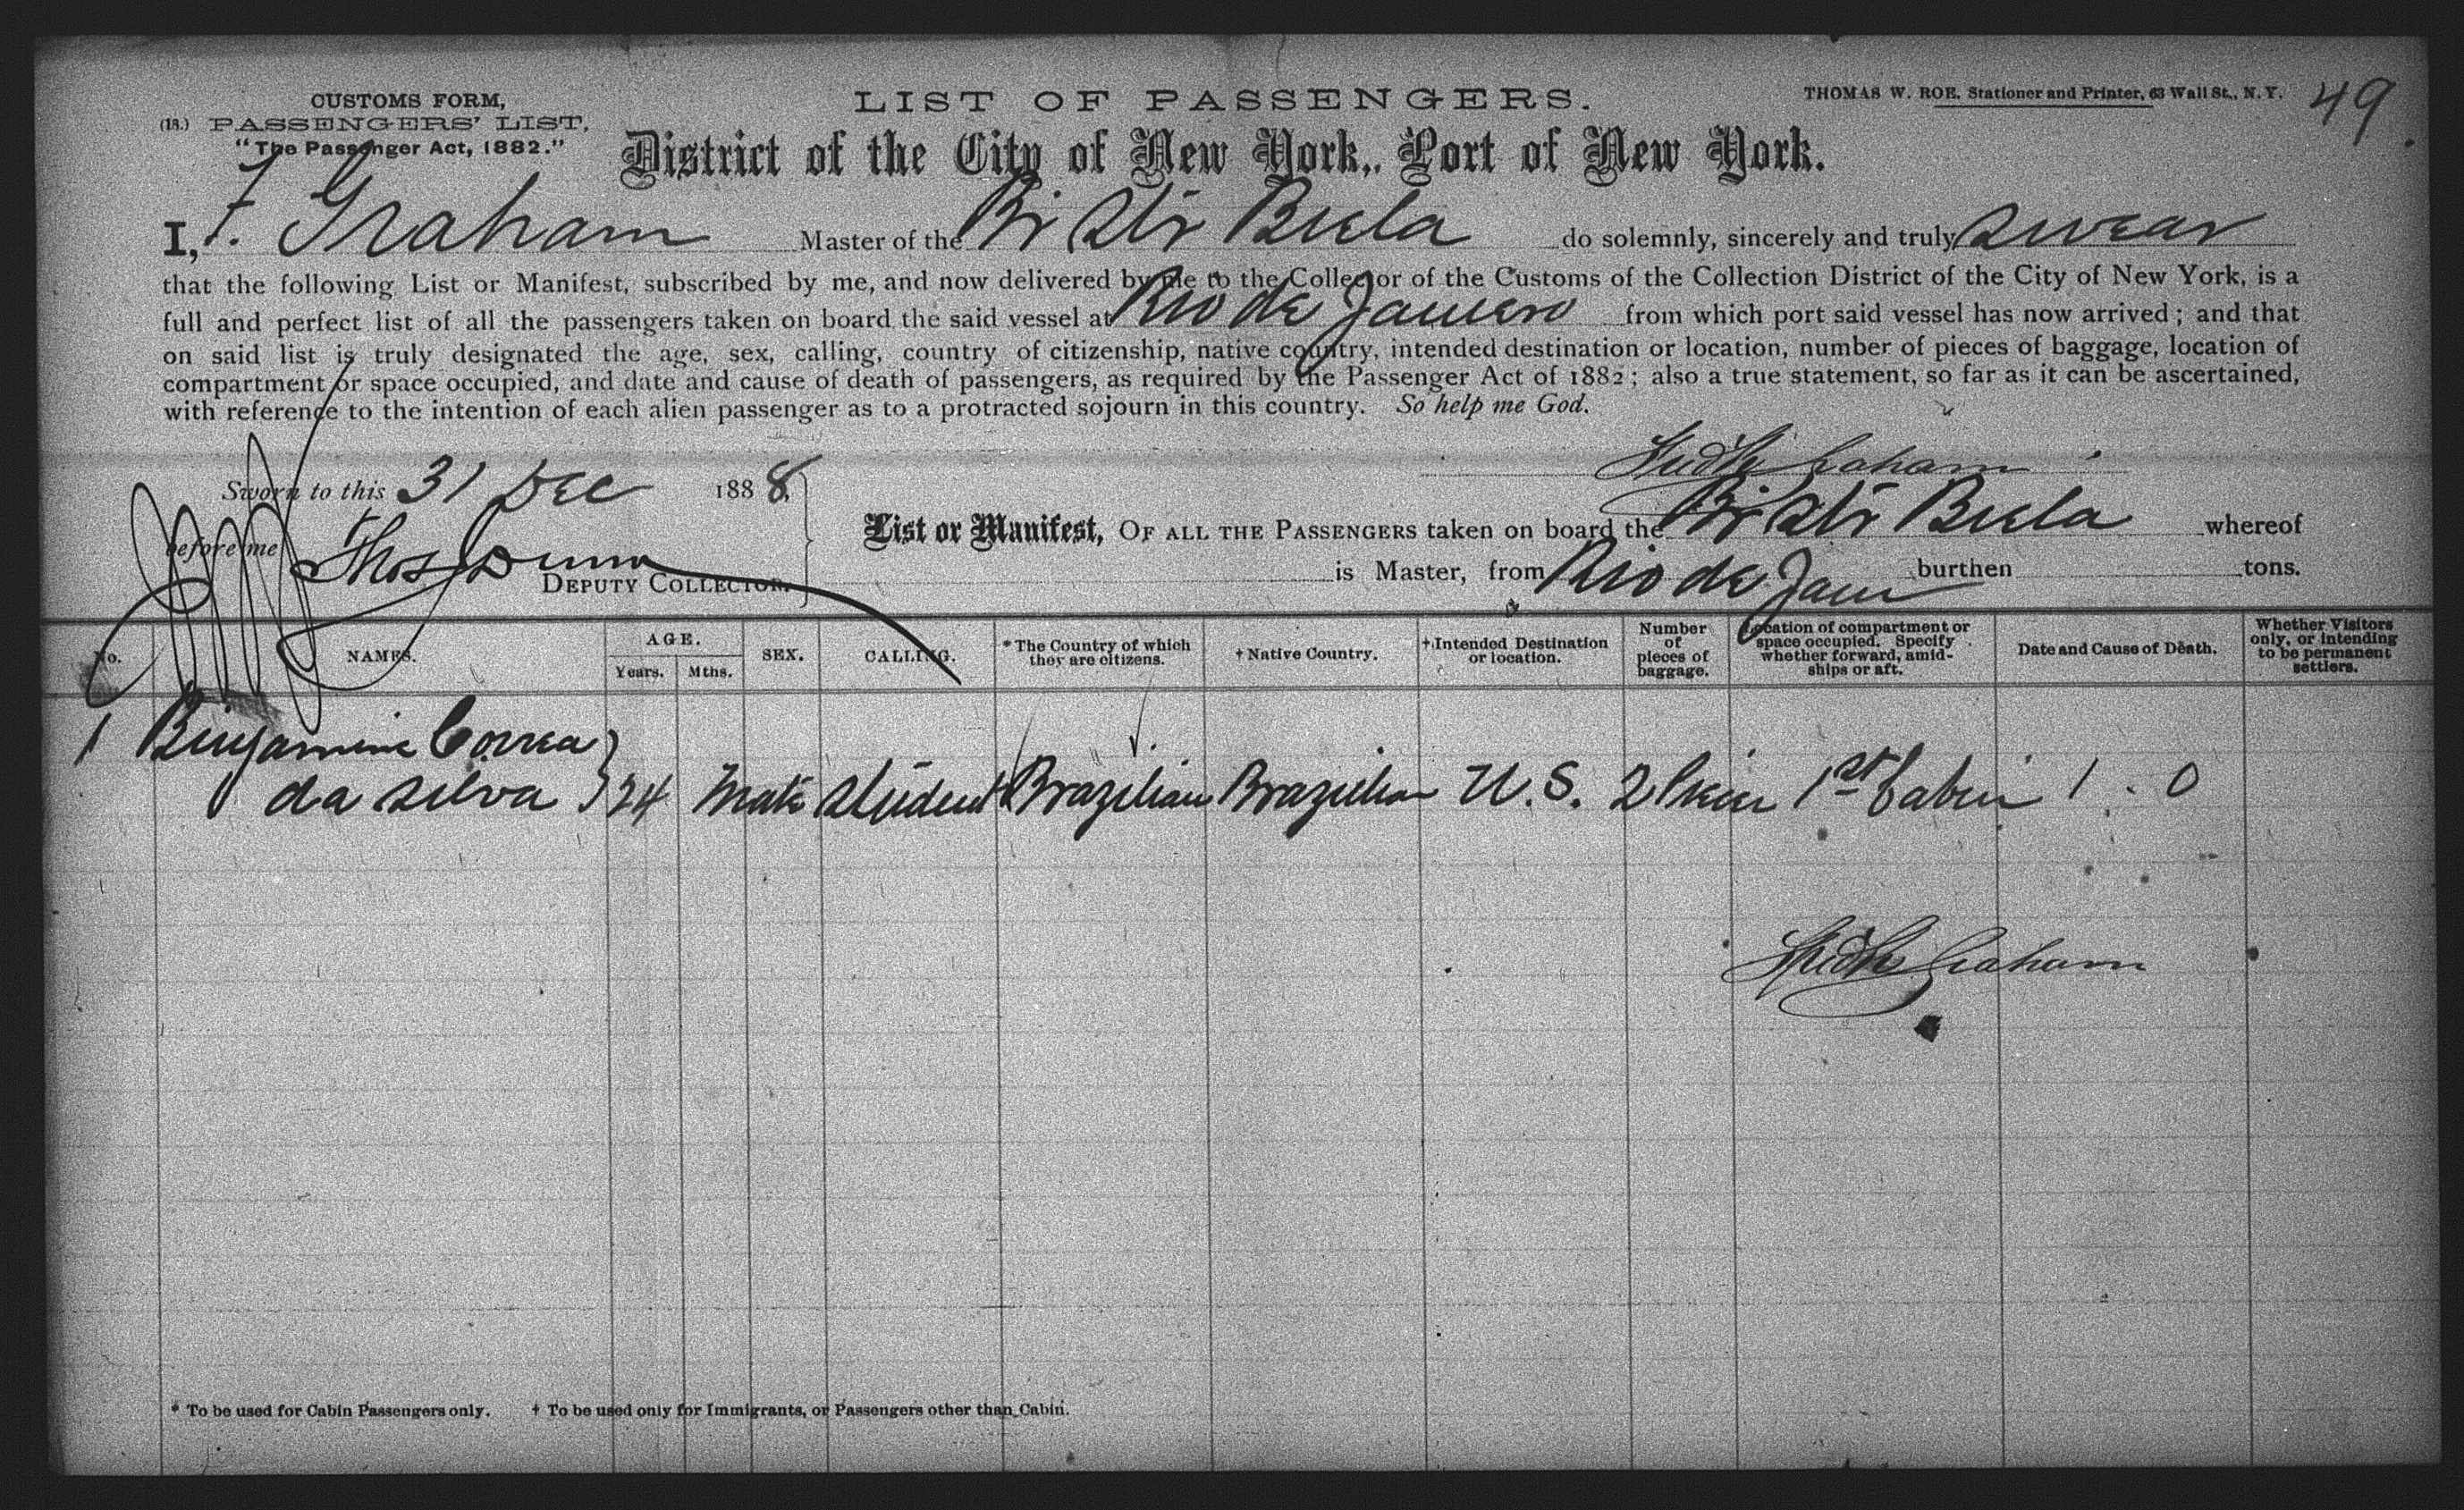 CUSTOMS FORM,
(18.) PASSENGERS' LIST,
"The Passenger Act, 1882."
LIST OF PASSENGERS.
THOMAS W. ROE. Stationer and Printer, 63 Wall St., N. Y.
49
District of the City of New York, Port of New York.
I, F. Graham Master of the Br Str Biela do solemnly, sincerely and truly swear
that the following List or Manifest, subscribed by me, and now delivered by me to the Collector of the Customs of the Collection District of the City of New York, is a
full and perfect list of all the passengers taken on board the said vessel at Rio de Janeiro from which port said vessel has now arrived; and that
on said list is truly designated the age, sex, calling, country of citizenship, native country, intended destination or location, number of pieces of baggage, location of
compartment or space occupied, and date and cause of death of passengers, as required by the Passenger Act of 1882; also a true statement, so far as it can be ascertained,
with reference to the intention of each alien passenger as to a protracted sojourn in this country. So help me God.
Graham
Sworn to this 31 Dec 1888
before me Thos Dunn
DEPUTY COLLECTOR.
List or Manifest, OF ALL THE PASSENGERS taken on board the Br Str Biela whereof
is Master, from Rio de Jan burthen tons.
No. NAMES. AGE. Years. Mths. SEX. CALLING. * The Country of which they are citizens. † Native Country. † Intended Destination or location. Number of pieces of baggage. Location of compartment or space occupied. Specify whether forward, amidships or aft. Date and Cause of Death. Whether Visitors only, or intending to be permanent settlers.
1 Benjamine Correa
da Silva 24 Male Student Brazilian Brazilian U.S. 2 1st Cabin 1 . 0
Graham
* To be used for Cabin Passengers only. † To be used only for Immigrants, or Passengers other than Cabin.